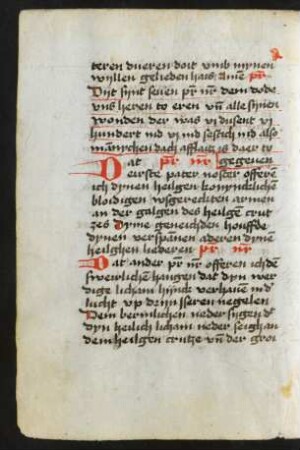 teren dueren doit vmb mynen
wyllen geleden hais Ame pr̅
Dijt synt seuen pr̅ nr̅ dem dode
vns heren to eren vn̅ alle synen
wonden der was vi dusent vi
hundert ind vi ind sestich ind also
mannychen dach afflais is daer to
Dat pr̅ nr̅ gegeuen
eirste pater noster offeren
ich dynen heilgen konynckliche̅
bloidigen vsgereckten armen
an der galgen des heilge̅ crut
zes Dyme geneichden houffde
dynen verspannen aderen dyne̅
heilgen lederen pr̅ nr̅
Dat ander pr̅ nr̅ offeren ich de̅
swerliche̅ hangen dat dyn wer
dige licham hijnck verhaue̅ ind
lucht vp den yseren negelen
Dem bermlichen neder sygen d
dyn heilich licham neder seigh an
dem heilgen crutze vn̅ der groi